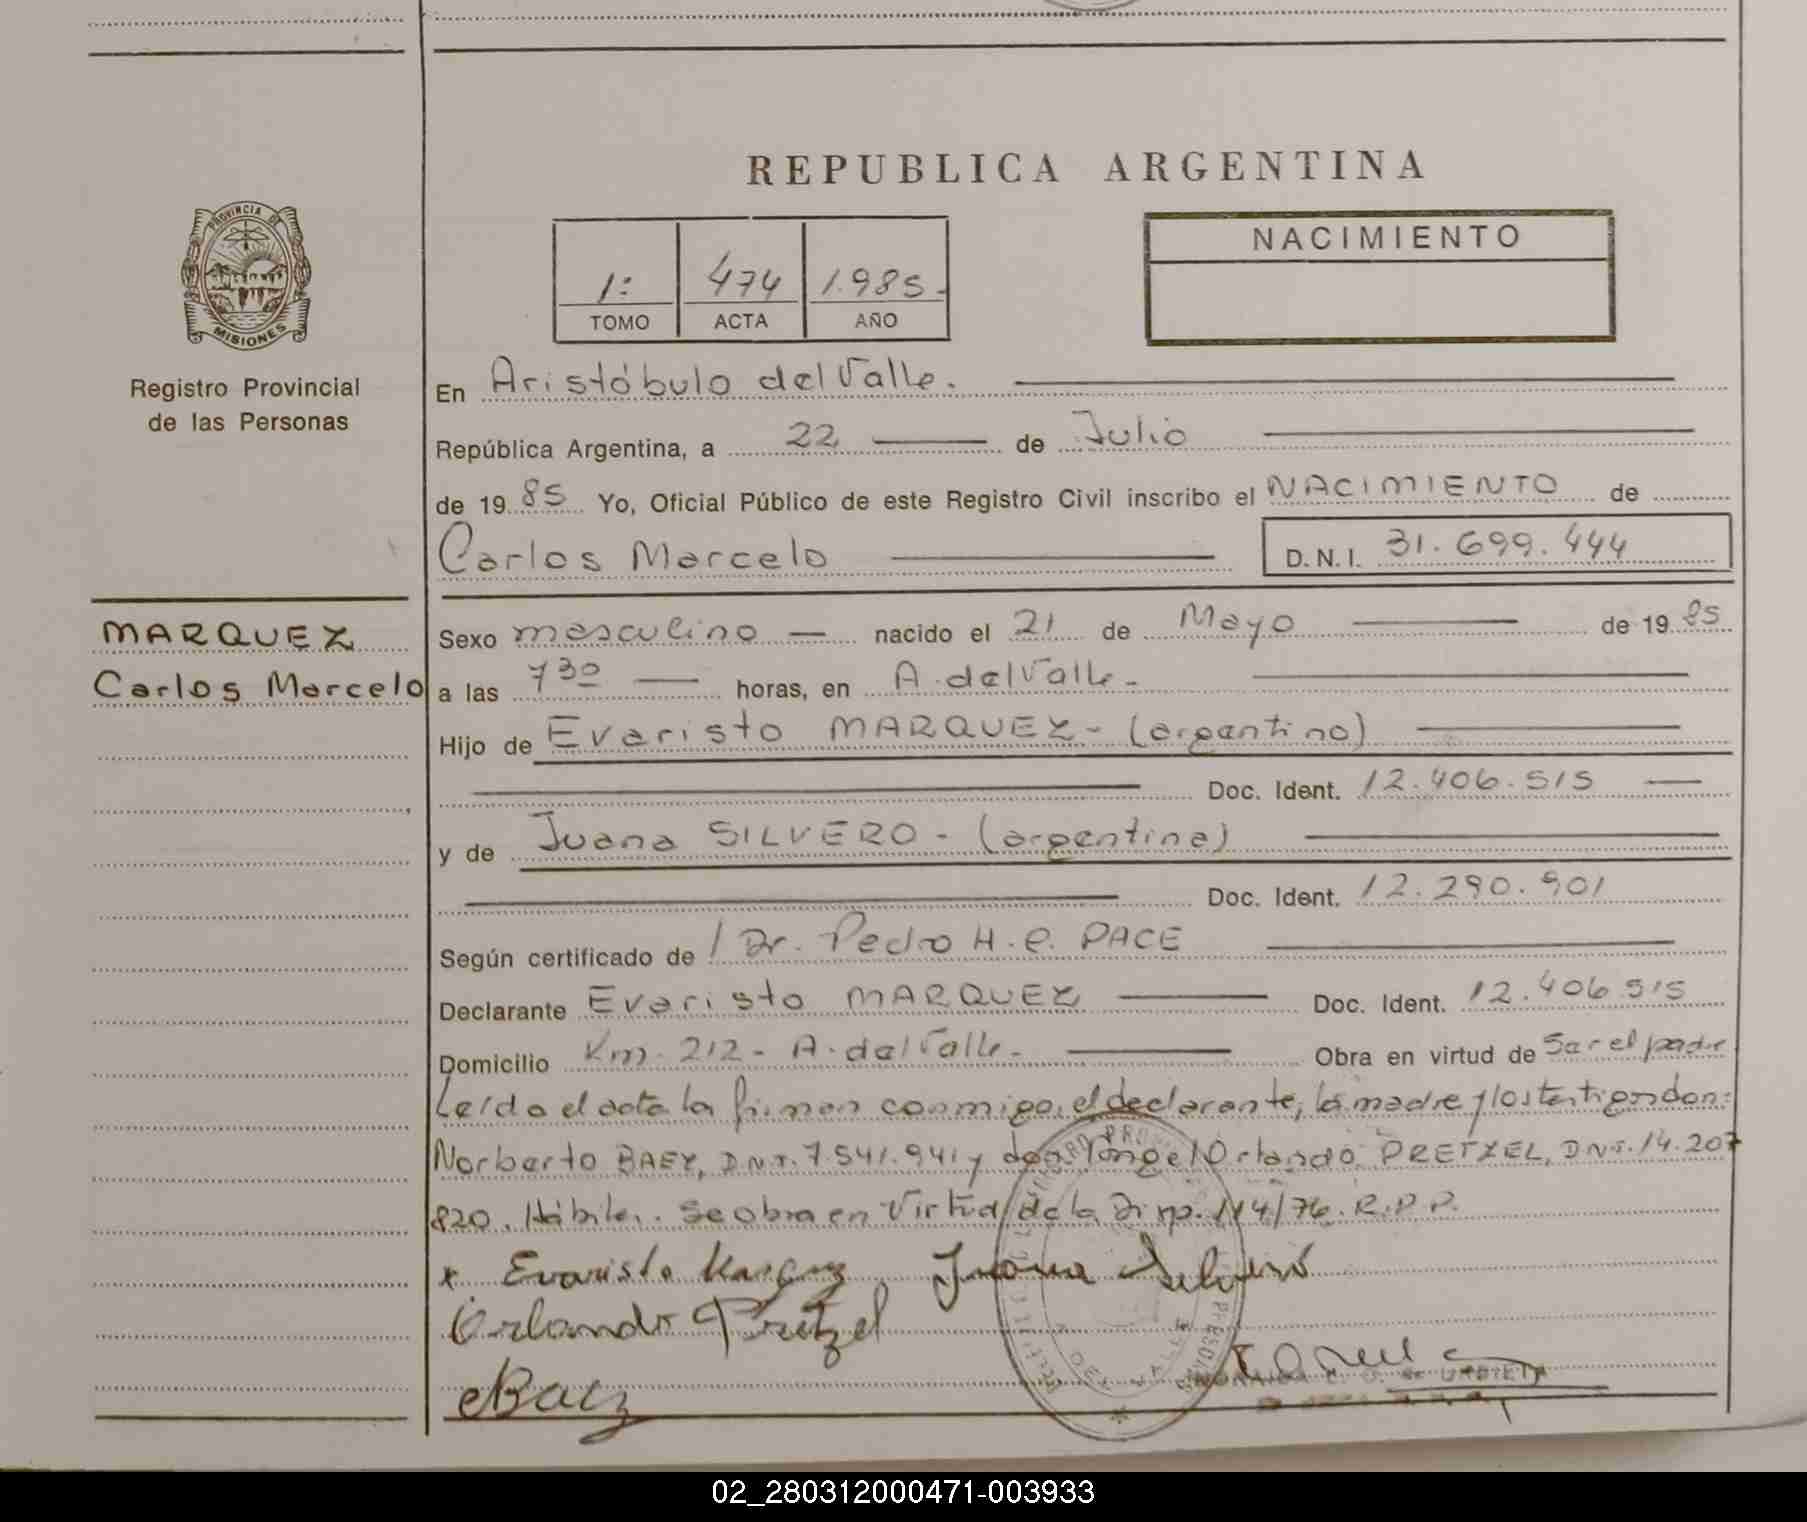 REPUBLICA ARGENTINA
PROVINCIA DE
MISIONES
Registro Provincial
de las Personas
1º 474 1.985.-
TOMO ACTA AÑO
NACIMIENTO
En Aristóbulo del Valle.
República Argentina, a 22 de Julio
de 19 85 Yo, Oficial Público de este Registro Civil inscribo el NACIMIENTO de
Carlos Marcelo D.N.I. 31.699.444
MARQUEZ
Carlos Marcelo
Sexo masculino nacido el 21 de Mayo de 19 85
a las 7 30 horas, en A. del Valle-
Hijo de Evaristo MARQUEZ- (argentino)
Doc. Ident. 12.406.515
y de Juana SILVERO - (argentina)
Doc. Ident. 12.290.901
Según certificado de Dr. Pedro H. P. PACE
Declarante Evaristo MARQUEZ Doc. Ident. 12.406.515
Domicilio Km. 212- A. del Valle- Obra en virtud de Ser el padre
Leída el acta la firman conmigo, el declarante, la madre y los testigos don:
Norberto BAEZ, D.N.I. 7.541.941 y don Orlando PRETZEL, D.N.I. 14.207
820. Hábiles. Se obra en Virtud de la Disp. 114/76. R.P.P.
x Evaristo Marquez Juana Silvero
Orlando Pretzel
Baez
02_280312000471-003933